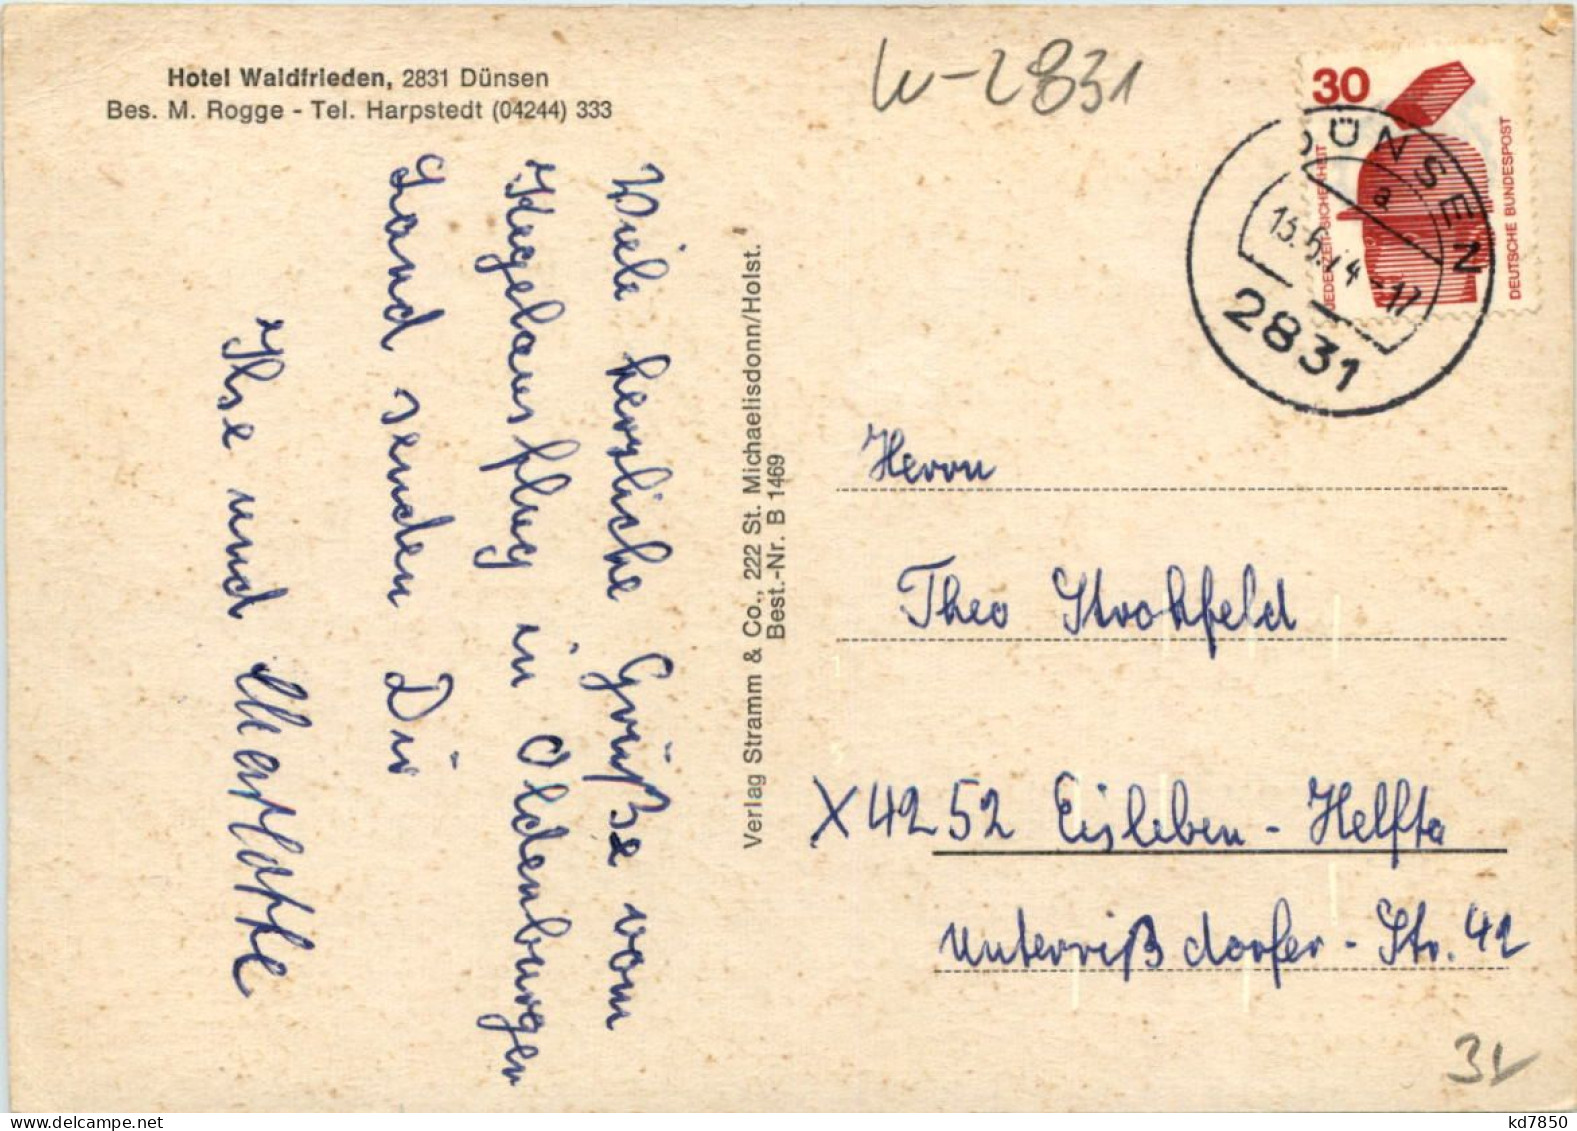 Hotel Waldfrieden, 2831 Dünsen
Bes. M. Rogge - Tel. Harpstedt (04244) 333
W-2831
30
JEDERZEIT SICHERHEIT
DEUTSCHE BUNDESPOST
DÜNSEN
a
13.6.74-17
2831
Viele herzliche Grüße vom
Kegelausflug in Oldenburger
Land senden Dir
Ihse und Marlotte
Verlag Stramm & Co., 222 St. Michaelisdonn/Holst.
Best.-Nr. B 1469
Herrn
Theo Strohfeld
X4252 Eisleben - Helfta
Unterrißdorfer - Str. 42
kd7850